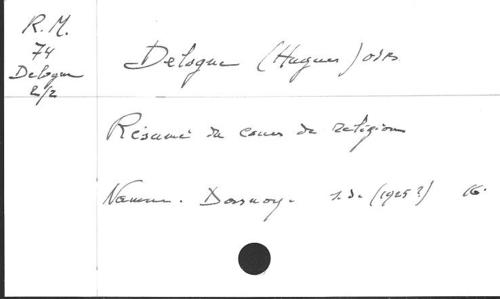 R. M.
74
Delogne
2/2
Delogne (Hugues)
Résumé du cours de religion
Namur. Dorsnoy. s.d. (1925?) 16.